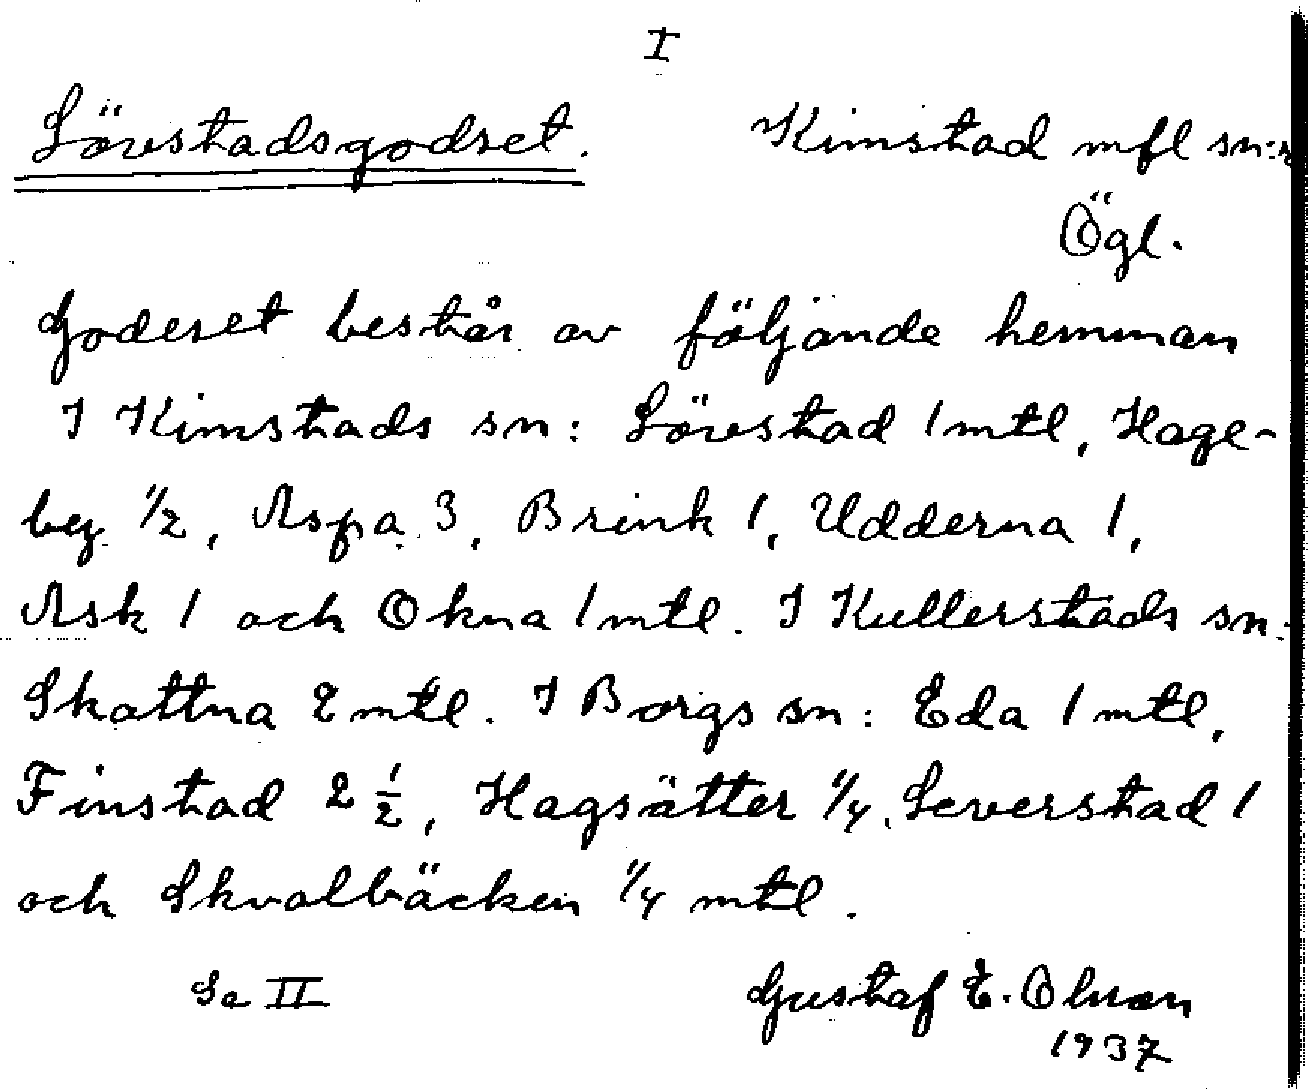 I
Lövstadsgodset. Kimstad mfl sn:r
Ögl.
Godeset består av följande hemman
I Kimstads sn: Lövstad 1 mtl, Hage-
by 1/2, Aspa 3, Brink 1, Udderna 1,
Ask 1 och Okna 1 mtl. I Kullerstads sn:
Skattna 2 mtl. I Borgs sn: Eda 1 mtl,
Finstad 2 1/2, Hagsätter 1/4, Severstad 1
och Skvalbäcken 1/4 mtl.
Se II Gustaf E. Olson
1937